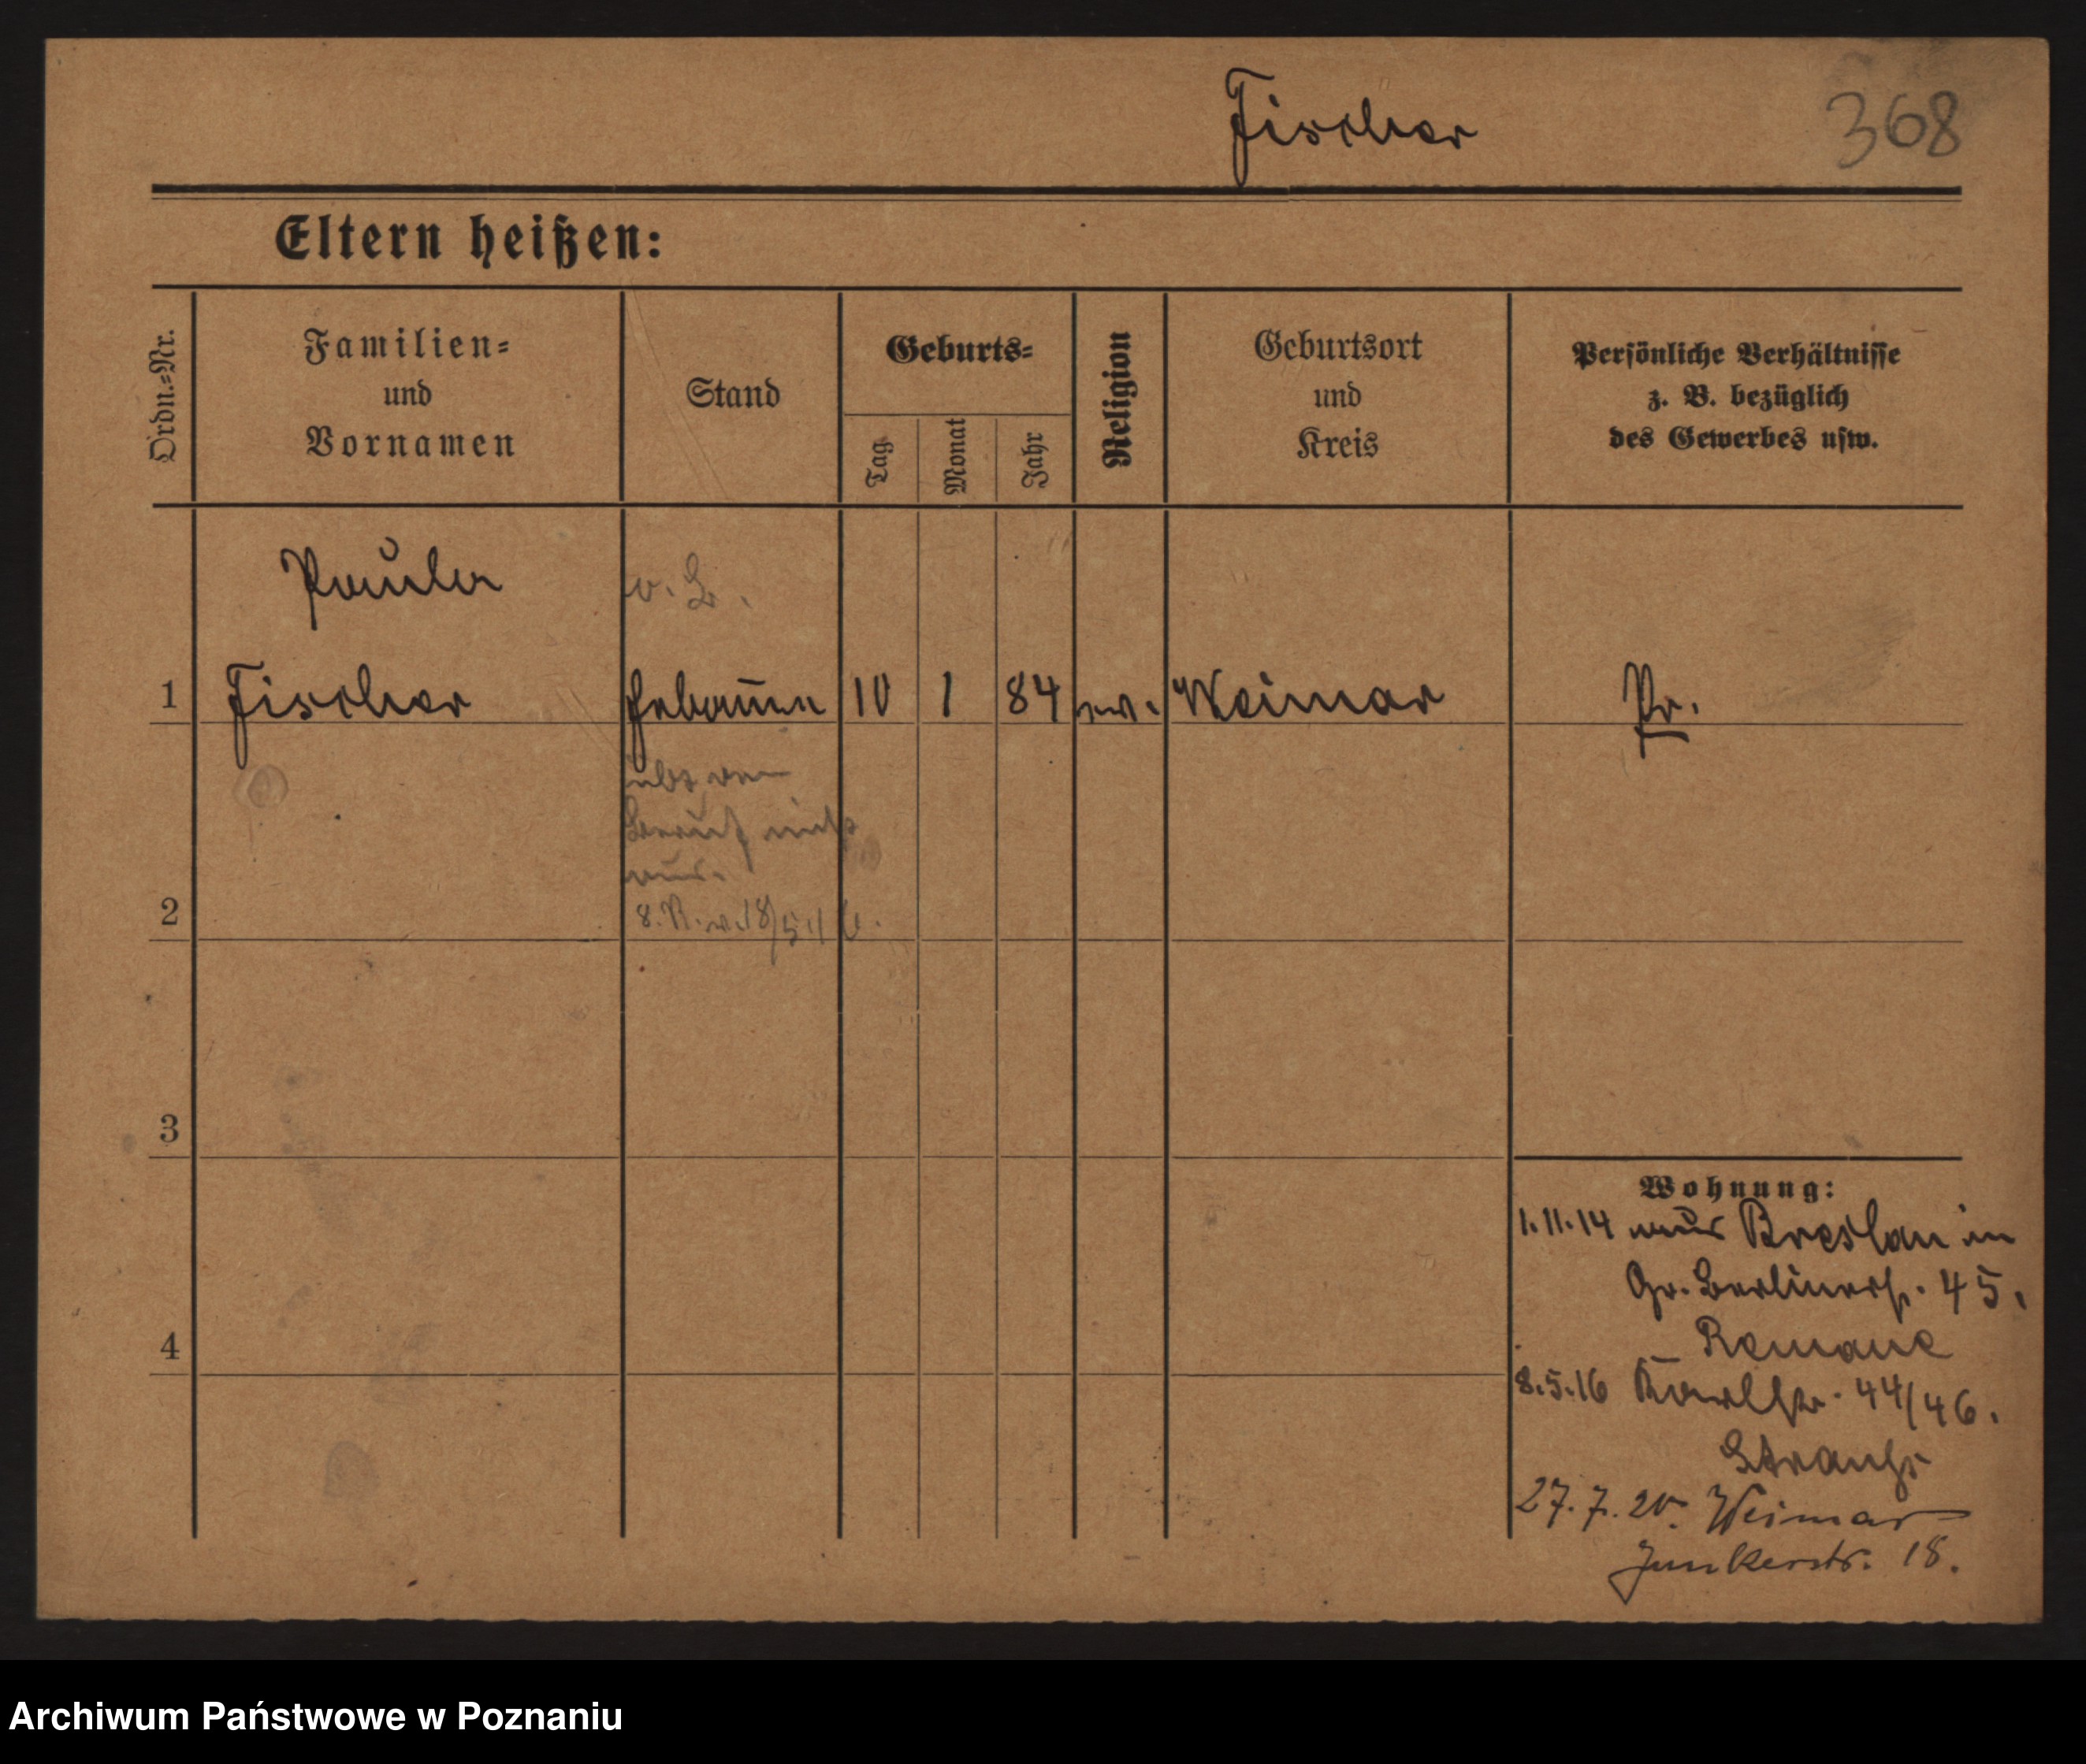 Fischer
368
Eltern heißen:
Ordn.=Nr.
Familien=
und
Vornamen
Stand
Geburts=
Tag
Monat
Jahr
Religion
Geburtsort
und
Kreis
Persönliche Verhältnisse
z. B. bezüglich
des Gewerbes usw.
Paula
1 Fischer Hebamme 10 1 84 ev. Weimar Pr.
übt den
Beruf nicht
aus.
2 8. R. v. 18/5 16.
3
4
Wohnung:
1.11.14 aus Breslau in
Gr. Berlinerstr. 45.
Remane
8.5.16 Karlstr. 44/46.
Strauß
27.7.20. Weimar
Junkerstr. 18.
Archiwum Państwowe w Poznaniu